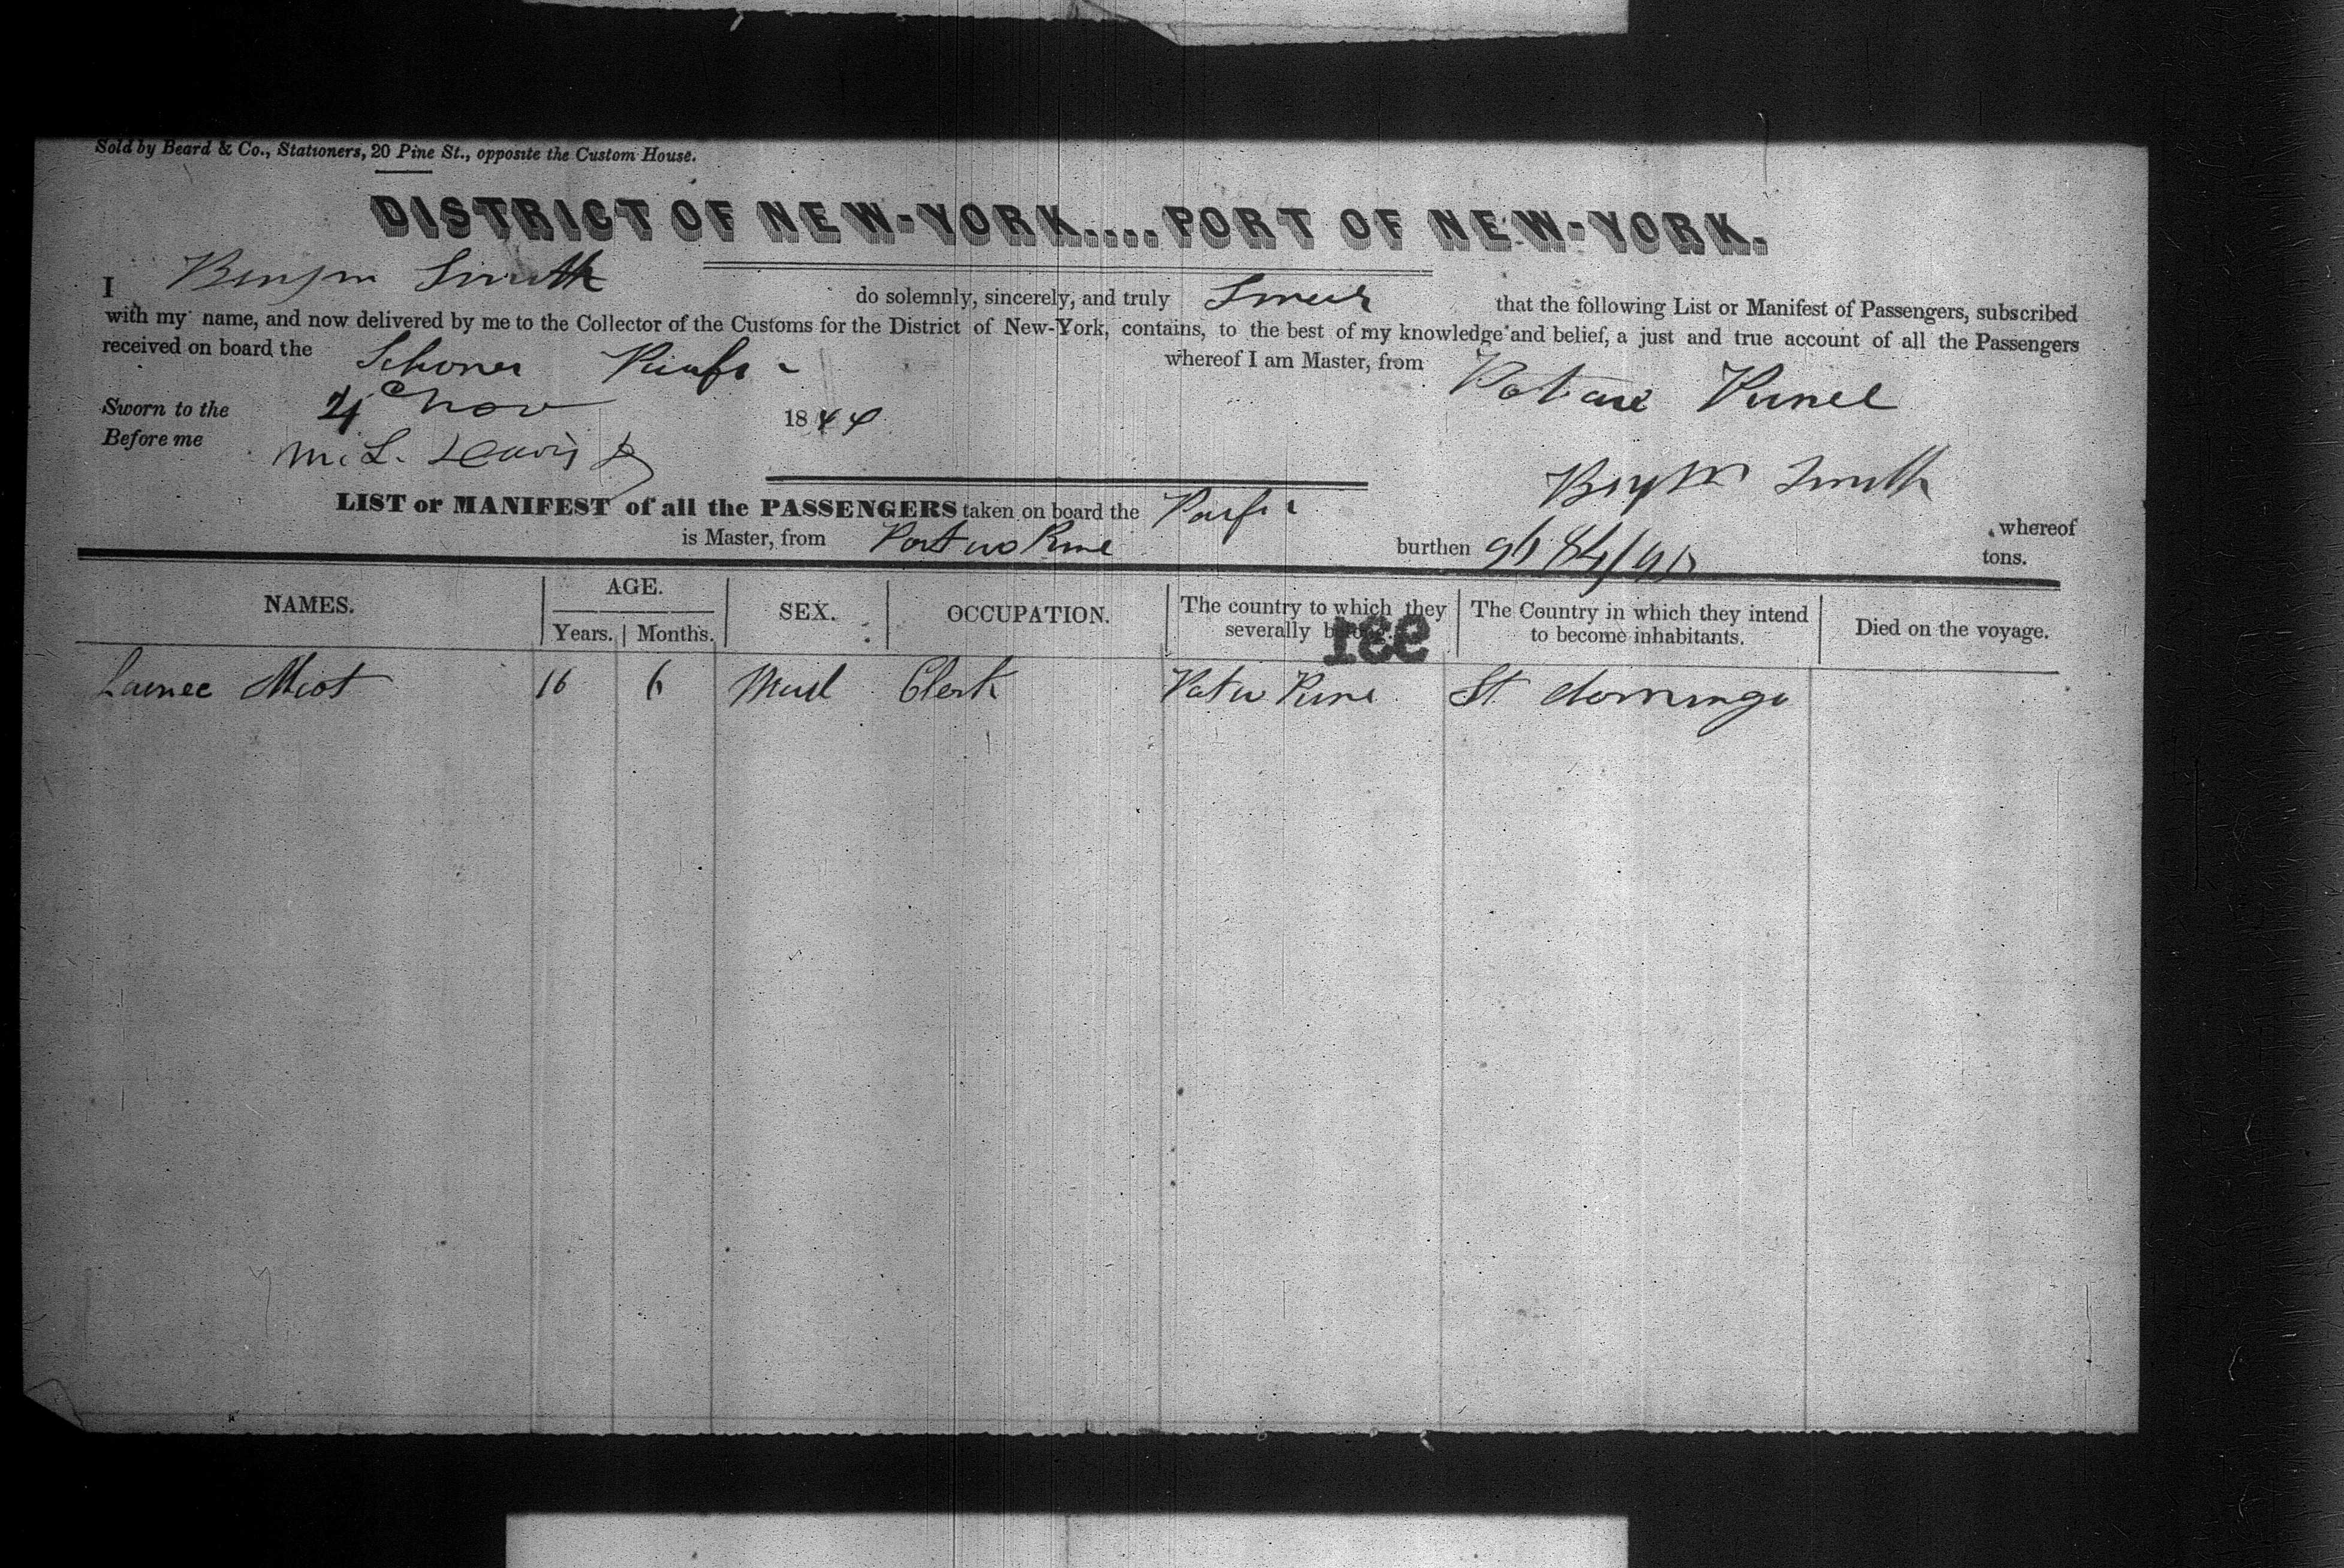 Sold by Beard & Co., Stationers, 20 Pine St., opposite the Custom House.
DISTRICT OF NEW-YORK....PORT OF NEW-YORK.
I Benjm Smith do solemnly, sincerely, and truly Swear that the following List or Manifest of Passengers, subscribed
with my name, and now delivered by me to the Collector of the Customs for the District of New-York, contains, to the best of my knowledge and belief, a just and true account of all the Passengers
received on board the Schoner whereof I am Master, from
Sworn to the 4 Nov 1844
Before me M. L. Davis
Benjm Smith
LIST or MANIFEST of all the PASSENGERS taken on board the whereof
is Master, from burthen tons.
NAMES. AGE. SEX. OCCUPATION. The country to which they severally belong. The Country in which they intend to become inhabitants. Died on the voyage.
Years. Months.
Miot 16 6 Clerk St domingo